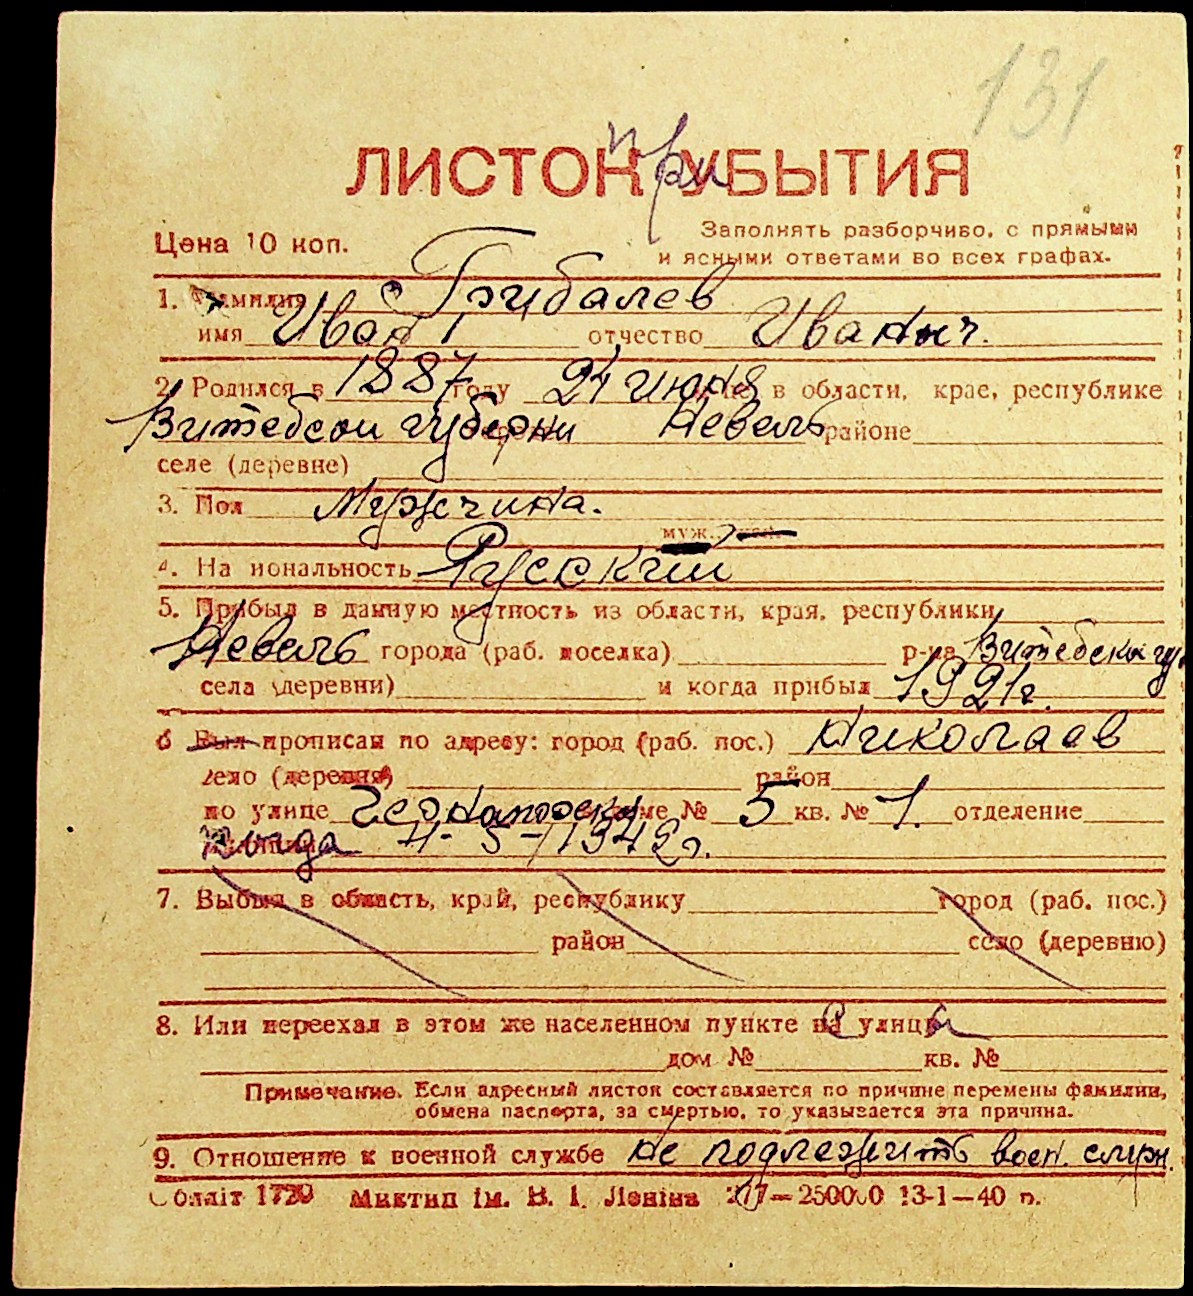 131
ЛИСТОК при УБЫТИЯ
Цена 10 коп.
Заполнять разборчиво, с прямыми
и ясными ответами во всех графах.
1. Фамилия Грибалев
имя Иван отчество Иваныч.
2. Родился в 1887 году 24 июня в области, крае, республике
Витебсои губерни Невель районе
селе (деревне)
3. Пол Мужчина.
муж.,
4. На иональность Русский
5. Прибыл в данную местность из области, края, республики
Невель города (раб. поселка) р-на Витебской гу.
села (деревни) и когда прибыл 1921г.
6 Был прописан по адресу: город (раб. пос.) Николаев
село (деревня) район
по улице доме № 5 кв. № 1. отделение
когда 4-5-1942г.
7. Выбыл в область, край, республику город (раб. пос.)
район село (деревню)
8. Или переехал в этом же населенном пункте на улицу
дом № кв. №
Примечание. Если адресный листок составляется по причине перемены фамилии,
обмена паспорта, за смертью, то указывается эта причина.
9. Отношение к военной службе не подлежить воен. служ.
Облліт 1720 Миктип ім. В. І. Леніна 217—250000 13-1—40 р.